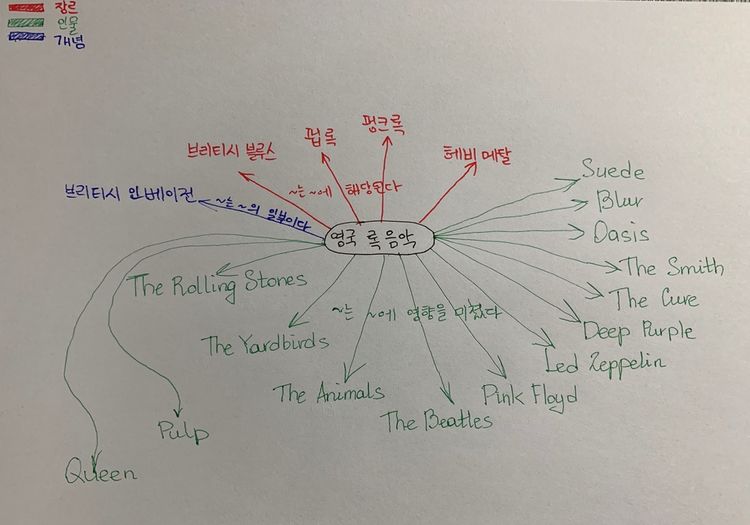 장르
인물
개념
펑크록
펍록
브리티시 블루스
헤비메탈
브리티시 인베이전
~는 ~에 해당된다
~는 ~의 일부이다
영국 록음악
Suede
Blur
Oasis
The Smith
The Cure
Deep Purple
Led Zeppelin
Pink Floyd
The Beatles
The Animals
The Yardbirds
The Rolling Stones
~는 ~에 영향을 미쳤다
Pulp
Queen